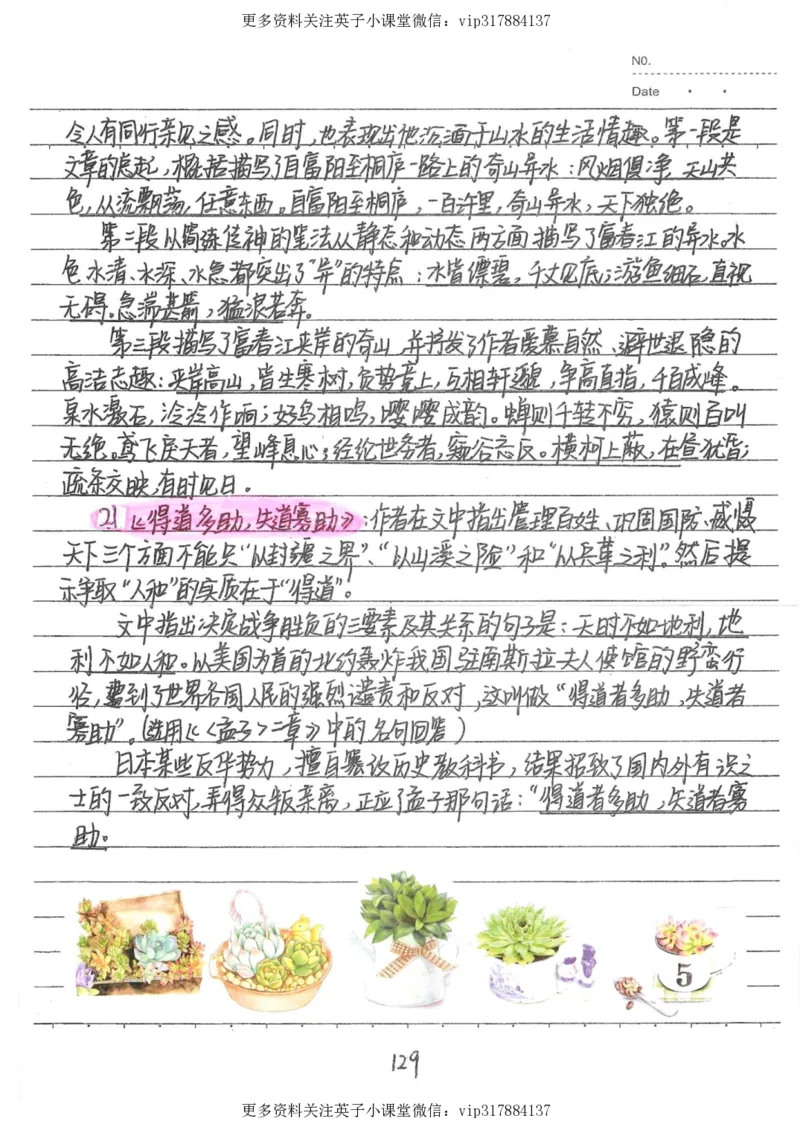 更多资料关注英子小课堂微信：vip317884137
NO.
Date
令人有同行亲见之感。同时，也表现出他沉湎于山水的生活情趣。第一段是
文章的总起，概括描写了自富阳至桐庐一路上的奇山异水：风烟俱净，天山共
色，从流飘荡，任意东西。自富阳至桐庐，一百许里，奇山异水，天下独绝。
第二段以简练传神的笔法从静态和动态两方面描写了富春江的异水。水
色水清、水深、水急都突出了“异”的特点：水皆缥碧，千丈见底；游鱼细石，直视
无碍。急湍甚箭，猛浪若奔。
第三段描写了富春江夹岸的奇山，并抒发了作者爱慕自然、避世退隐的
高洁志趣：夹岸高山，皆生寒树，负势竞上，互相轩邈，争高直指，千百成峰。
泉水激石，泠泠作响；好鸟相鸣，嘤嘤成韵。蝉则千转不穷，猿则百叫
无绝。鸢飞戾天者，望峰息心；经纶世务者，窥谷忘反。横柯上蔽，在昼犹昏；
疏条交映，有时见日。
21《得道多助，失道寡助》：作者在文中指出管理百姓、巩固国防、威慑
天下三个方面不能只“以封疆之界”、“以山溪之险”和“以兵革之利”。然后提
示争取“人和”的实质在于“得道”。
文中指出决定战争胜负的三要素及其关系的句子是：天时不如地利，地
利不如人和。以美国为首的北约轰炸我国驻南斯拉夫大使馆的野蛮行
径，遭到了世界各国人民的强烈谴责和反对，这叫做“得道者多助，失道者
寡助”。（选用《<孟子>二章》中的名句回答）
日本某些反华势力，擅自篡改历史教科书，结果招致了国内外有识之
士的一致反对，弄得众叛亲离，正应了孟子那句话：“得道者多助，失道者寡
助。
5
129
更多资料关注英子小课堂微信：vip317884137